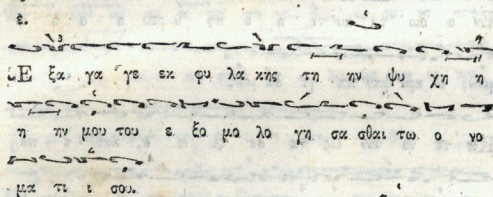 ε.
Ε ξα γα γε εκ φυ λα κης τη ην ψυ χη η
η ην μου του ε ξο μο λο γη σα σθαι τω ο νο
μα τι ι σου.